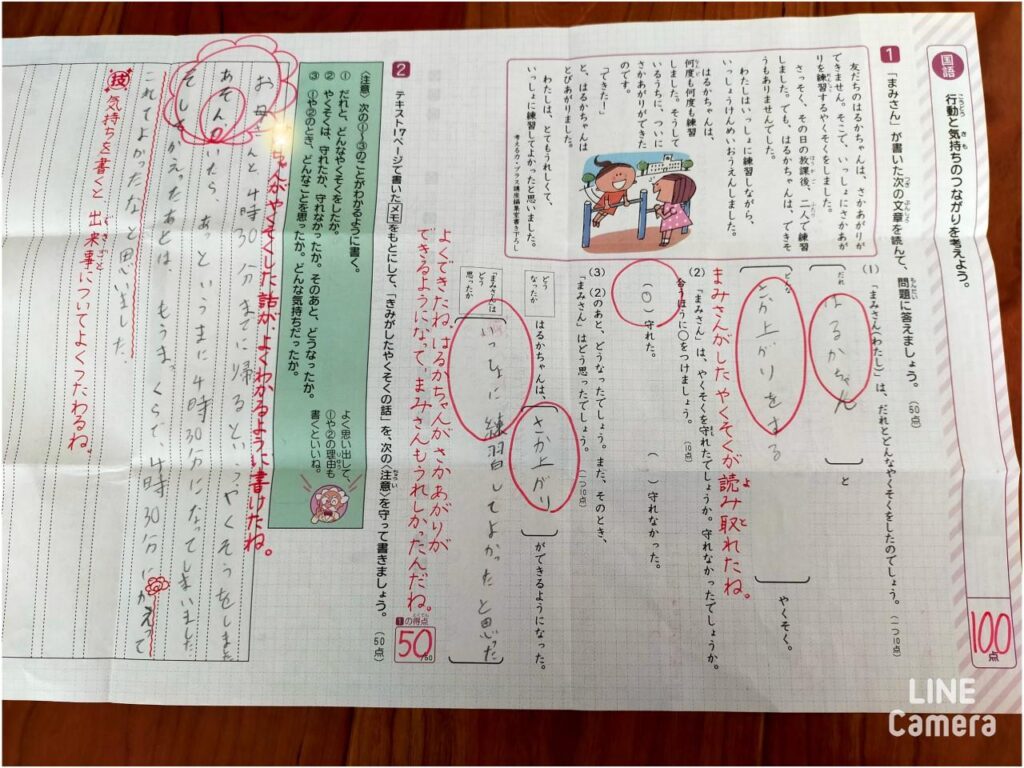 国語
行動と気持ちのつながりを考えよう。
100点
1
「まみさん」が書いた次の文章を読んで、問題に答えましょう。
(50点)
友だちのはるかちゃんは、さかあがりが
できません。そこで、いっしょにさかあが
りを練習するやくそくをしました。
さっそく、その日の放課後、二人で練習
しました。でも、はるかちゃんは、できそ
うもありませんでした。
わたしはいっしょに練習しながら、
いっしょうけんめいおうえんしました。
はるかちゃんは、
何度も何度も練習
しました。そうして
いるうちに、ついに
さかあがりができた
のです。
「できた！」
と、はるかちゃんは
とびあがりました。
わたしは、とてもうれしくて、
いっしょに練習してよかったと思いました。
考える力・プラス講座編集室書き下ろし
(1) 「まみさん(わたし)」は、だれとどんなやくそくをしたのでしょう。
(一つ10点)
だれ
はるかちゃん
と
どんな
さか上がりをする
やくそく。
まみさんがしたやくそくが読み取れたね。
(2) 「まみさん」は、やくそくを守れたでしょうか。守れなかったでしょうか。
合うほうに○をつけましょう。
(10点)
(○)守れた。
( )守れなかった。
(3) (2)のあと、どうなったでしょう。また、そのとき、
「まみさん」はどう思ったでしょう。
(一つ10点)
どう
なったか
はるかちゃんは、
さか上がり
ができるようになった。
「まみさん」は
どう
思ったか
いっしょに練習してよかったと思った
よくできたね。はるかちゃんがさかあがりが
できるようになって、まみさんもうれしかったんだね。
1の得点
50/50
2
テキスト17ページで書いたメモをもとにして、「きみがしたやくそくの話」を、次の〈注意〉を守って書きましょう。
(50点)
〈注意〉次の①~③のことがわかるように書く。
① だれと、どんなやくそくをしたか。
② やくそくは、守れたか、守れなかったか。そのあと、どうなったか。
③ ①や②のとき、どんなことを思ったか。どんな気持ちだったか。
よく思い出して、
①や②の理由も
書くといいね。
ちゃんがやくそくした話が、よくわかるように書けたね。
お母さんと4時30分までに帰るというやくそくをしました
あそんでいたら、あっというまに4時30分になってしまいました
そしてかえったあとは、もうまっくらで、4時30分にかえって
これてよかったなと思いました。
技 気持ちを書くと、出来事についてよくつたわるね。
LINE
Camera